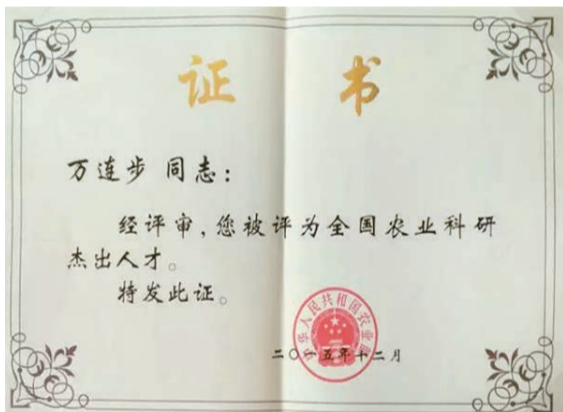 证 书
万连步 同志：
经评审，您被评为全国农业科研
杰出人才。
特发此证。
中华人民共和国农业部
二〇一五年十二月